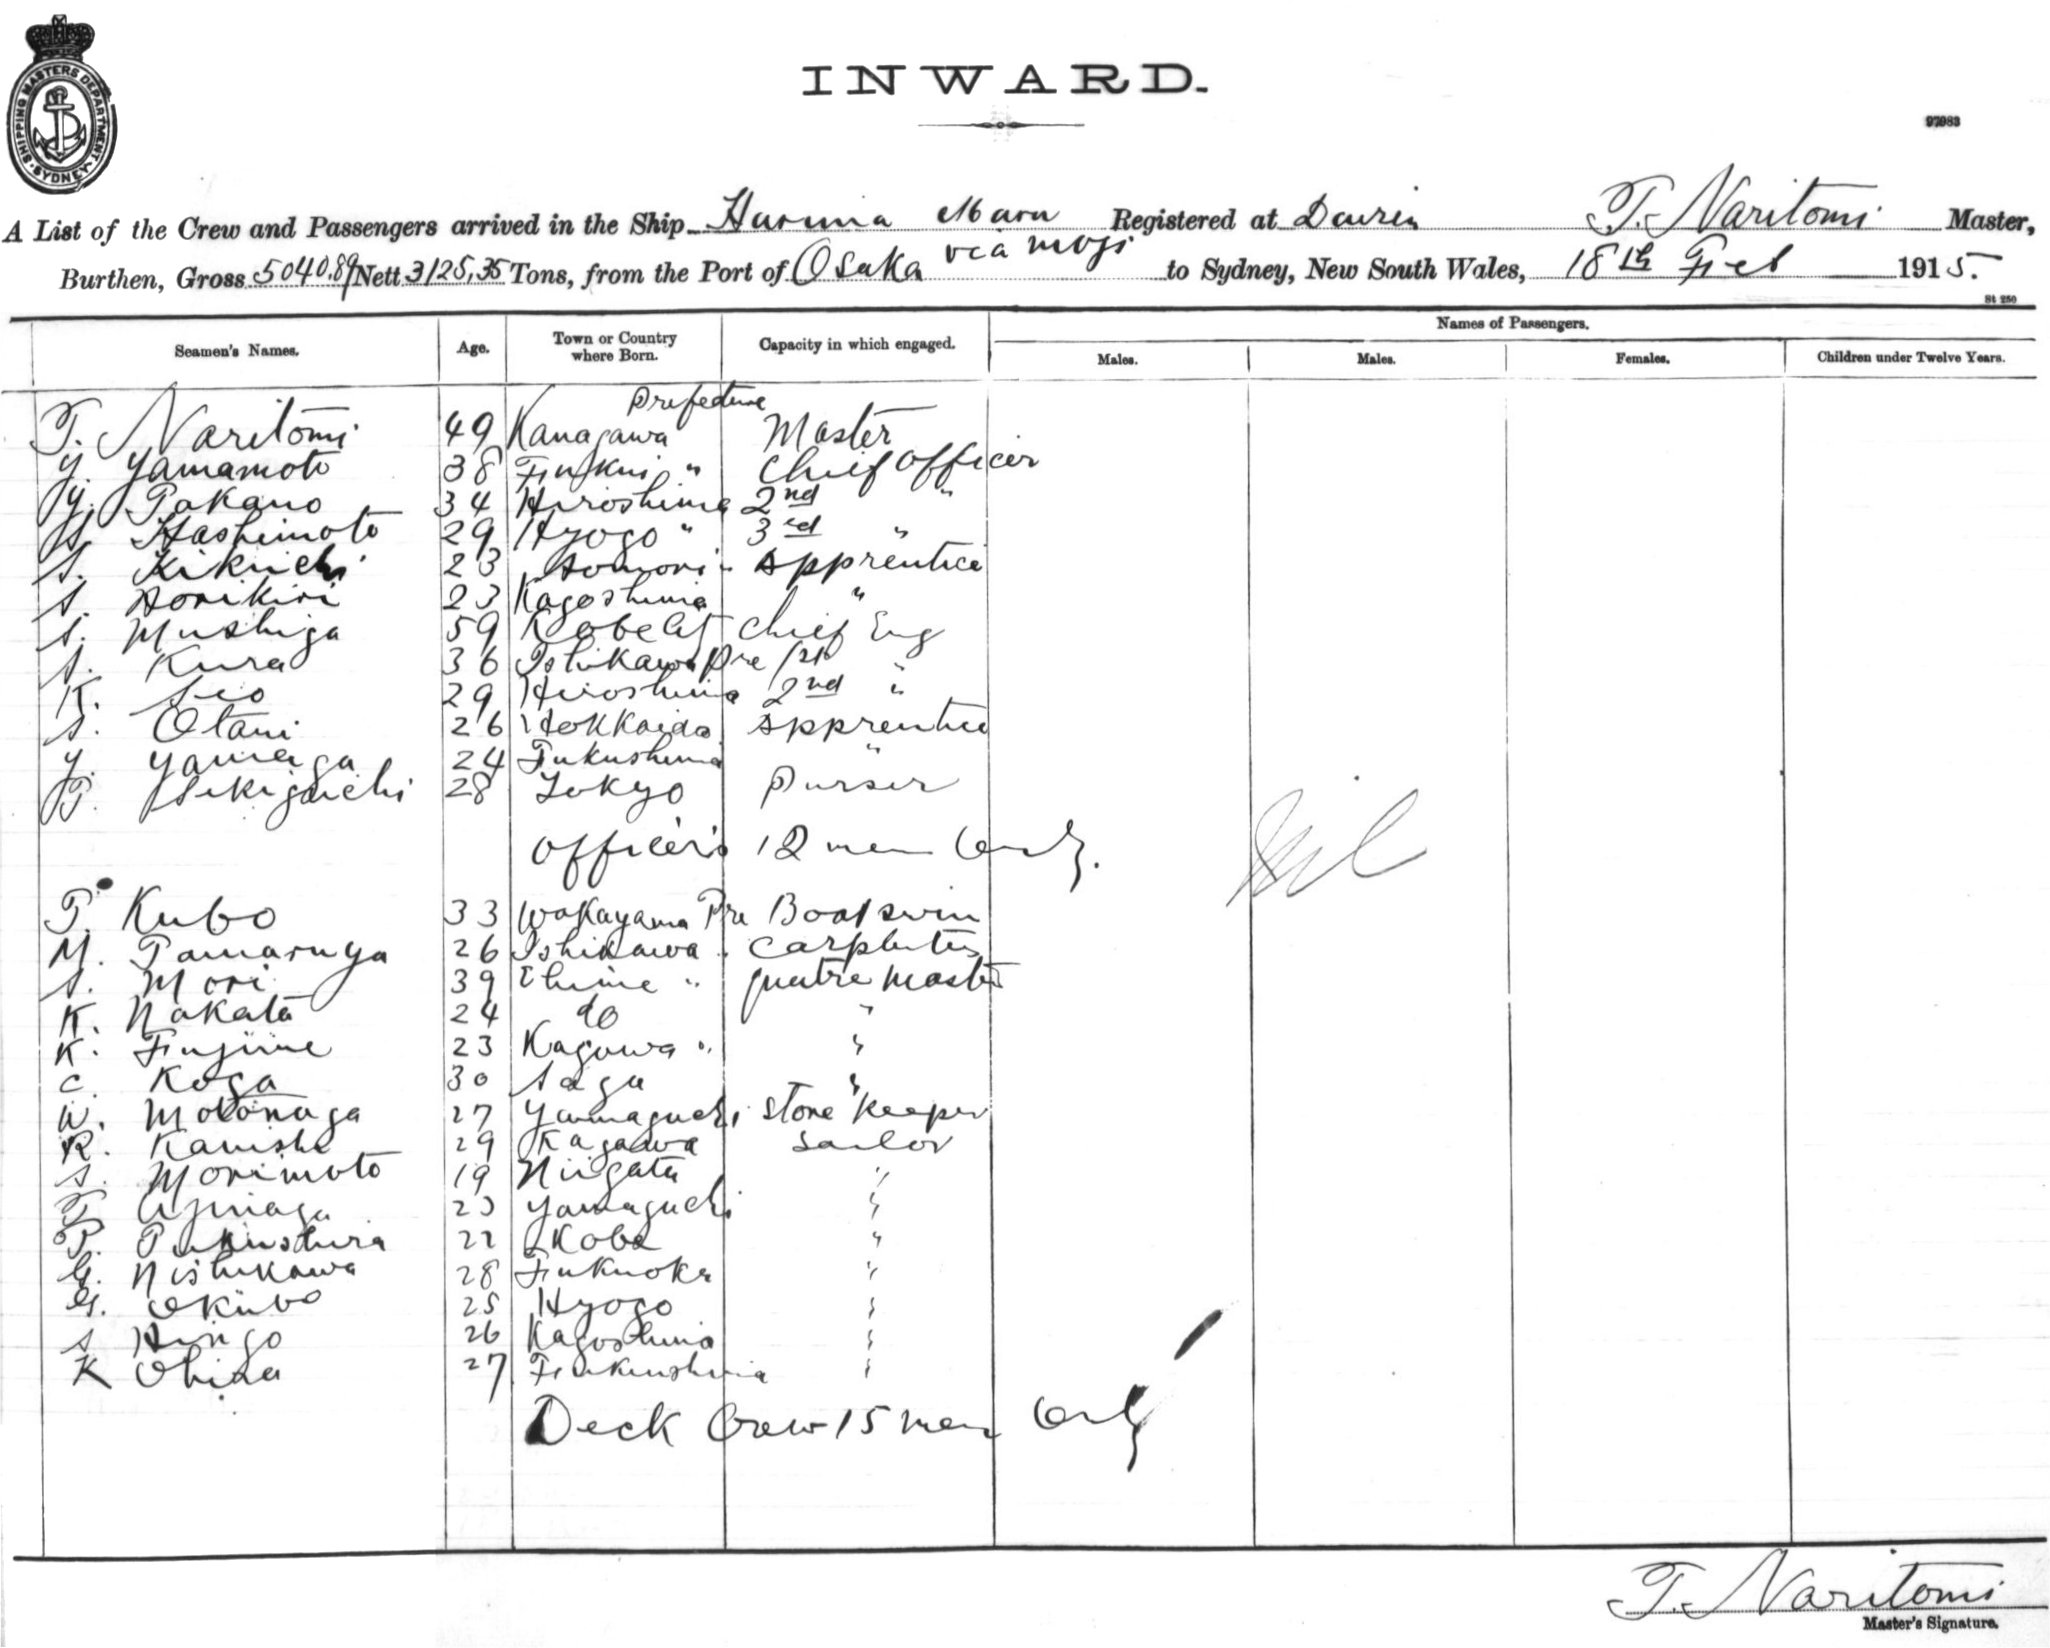 SHIPPING MASTERS DEPARTMENT. SYDNEY
INWARD.
97983
A List of the Crew and Passengers arrived in the Ship Harima Maru Registered at Dairen T. Naritomi Master,
Burthen, Gross 5040.89 Nett 3125,35 Tons, from the Port of Osaka via Moji to Sydney, New South Wales, 18th Feb 1915.
St 250
Seamen's Names. Age. Town or Country where Born. Capacity in which engaged. Names of Passengers.
Males. Males. Females. Children under Twelve Years.
Prefecture
T. Naritomi 49 Kanagawa Master
Y. Yamamoto 38 Fukui " Chief Officer
Y. Takano 34 Hiroshima 2nd "
S. Hashimoto 29 Hyogo " 3rd "
S. Kikuchi 23 Aomori " Apprentice
S. Horikiri 23 Kagoshima "
S. Mushiga 59 Kobe City Chief Eng
S. Kura 36 Ishikawa Pre 1st "
K. Seo 29 Hiroshima 2nd "
S. Otani 26 Hokkaido Apprentice
Y. Yamaga 24 Fukushima "
T. Sekiguichi 28 Tokyo Purser
Officer's 12 men Only.
Nil
T. Kubo 33 Wakayama Pre Boatswin
M. Tamaruya 26 Ishikawa "
S. Mori 39 Ehime " quatre Master
K. Nakata 24 do "
K. Fujime 23 Kagawa " "
C. Koga 30 Saga "
W. Motonaga 27 Yamaguchi Store Keeper
R. Kanishi 29 Kagawa Sailor
S. Morimoto 19 Niigata "
T. 23 Yamaguchi "
T. 22 Kobe "
G. Nishikawa 28 Fukuoka "
G. Okubo 25 Hyogo "
S. Hingo 26 Kagoshima "
K Ohira 27 Fukushima "
Deck Crew 15 men Only
T. Naritomi
Master's Signature.